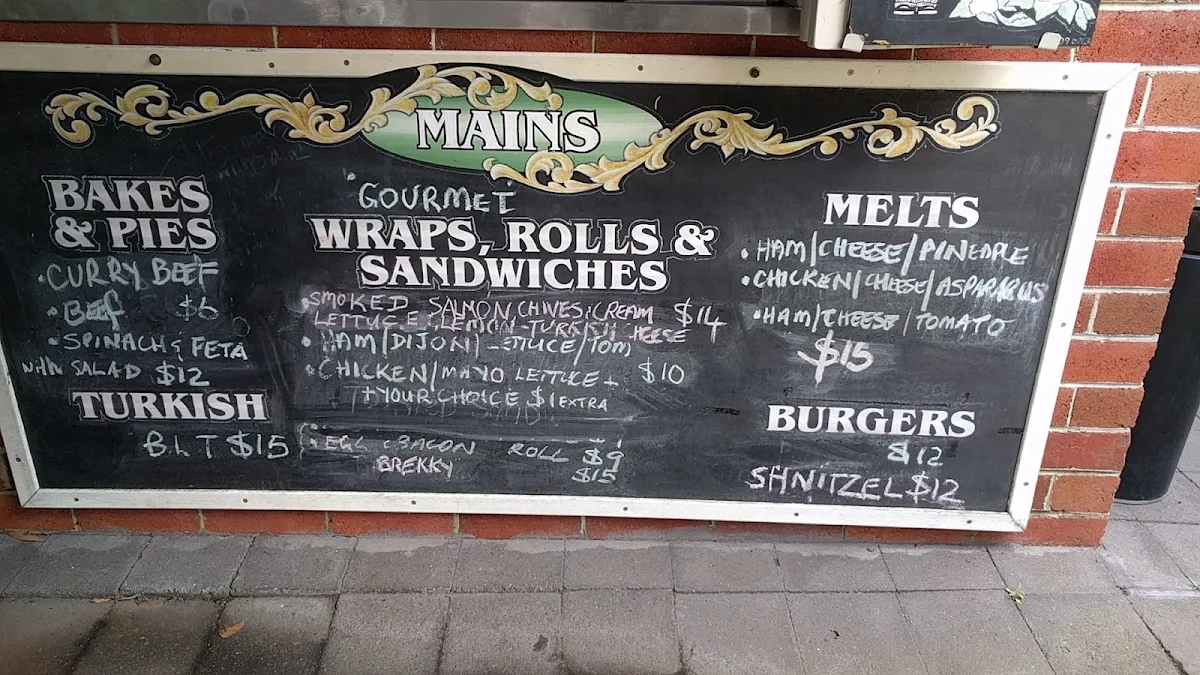 MAINS
BAKES
& PIES
• CURRY BEEF
• BEEF $6
• SPINACH & FETA
WITH SALAD $12
TURKISH
B.L.T $15
GOURMET
WRAPS, ROLLS &
SANDWICHES
• SMOKED SALMON, CHIVES, CREAM $14
LETTUCE, LEMON - TURKISH CHEESE
• HAM/DIJON/LETTUCE/TOM
• CHICKEN/MAYO LETTUCE + $10
+ YOUR CHOICE $1 EXTRA
EGG & BACON ROLL $9
BREKKY $15
MELTS
• HAM/CHEESE/PINEAPLE
• CHICKEN/CHEESE/ASPARAGUS
• HAM/CHEESE/TOMATO
$15
BURGERS
$12
SHNITZEL $12